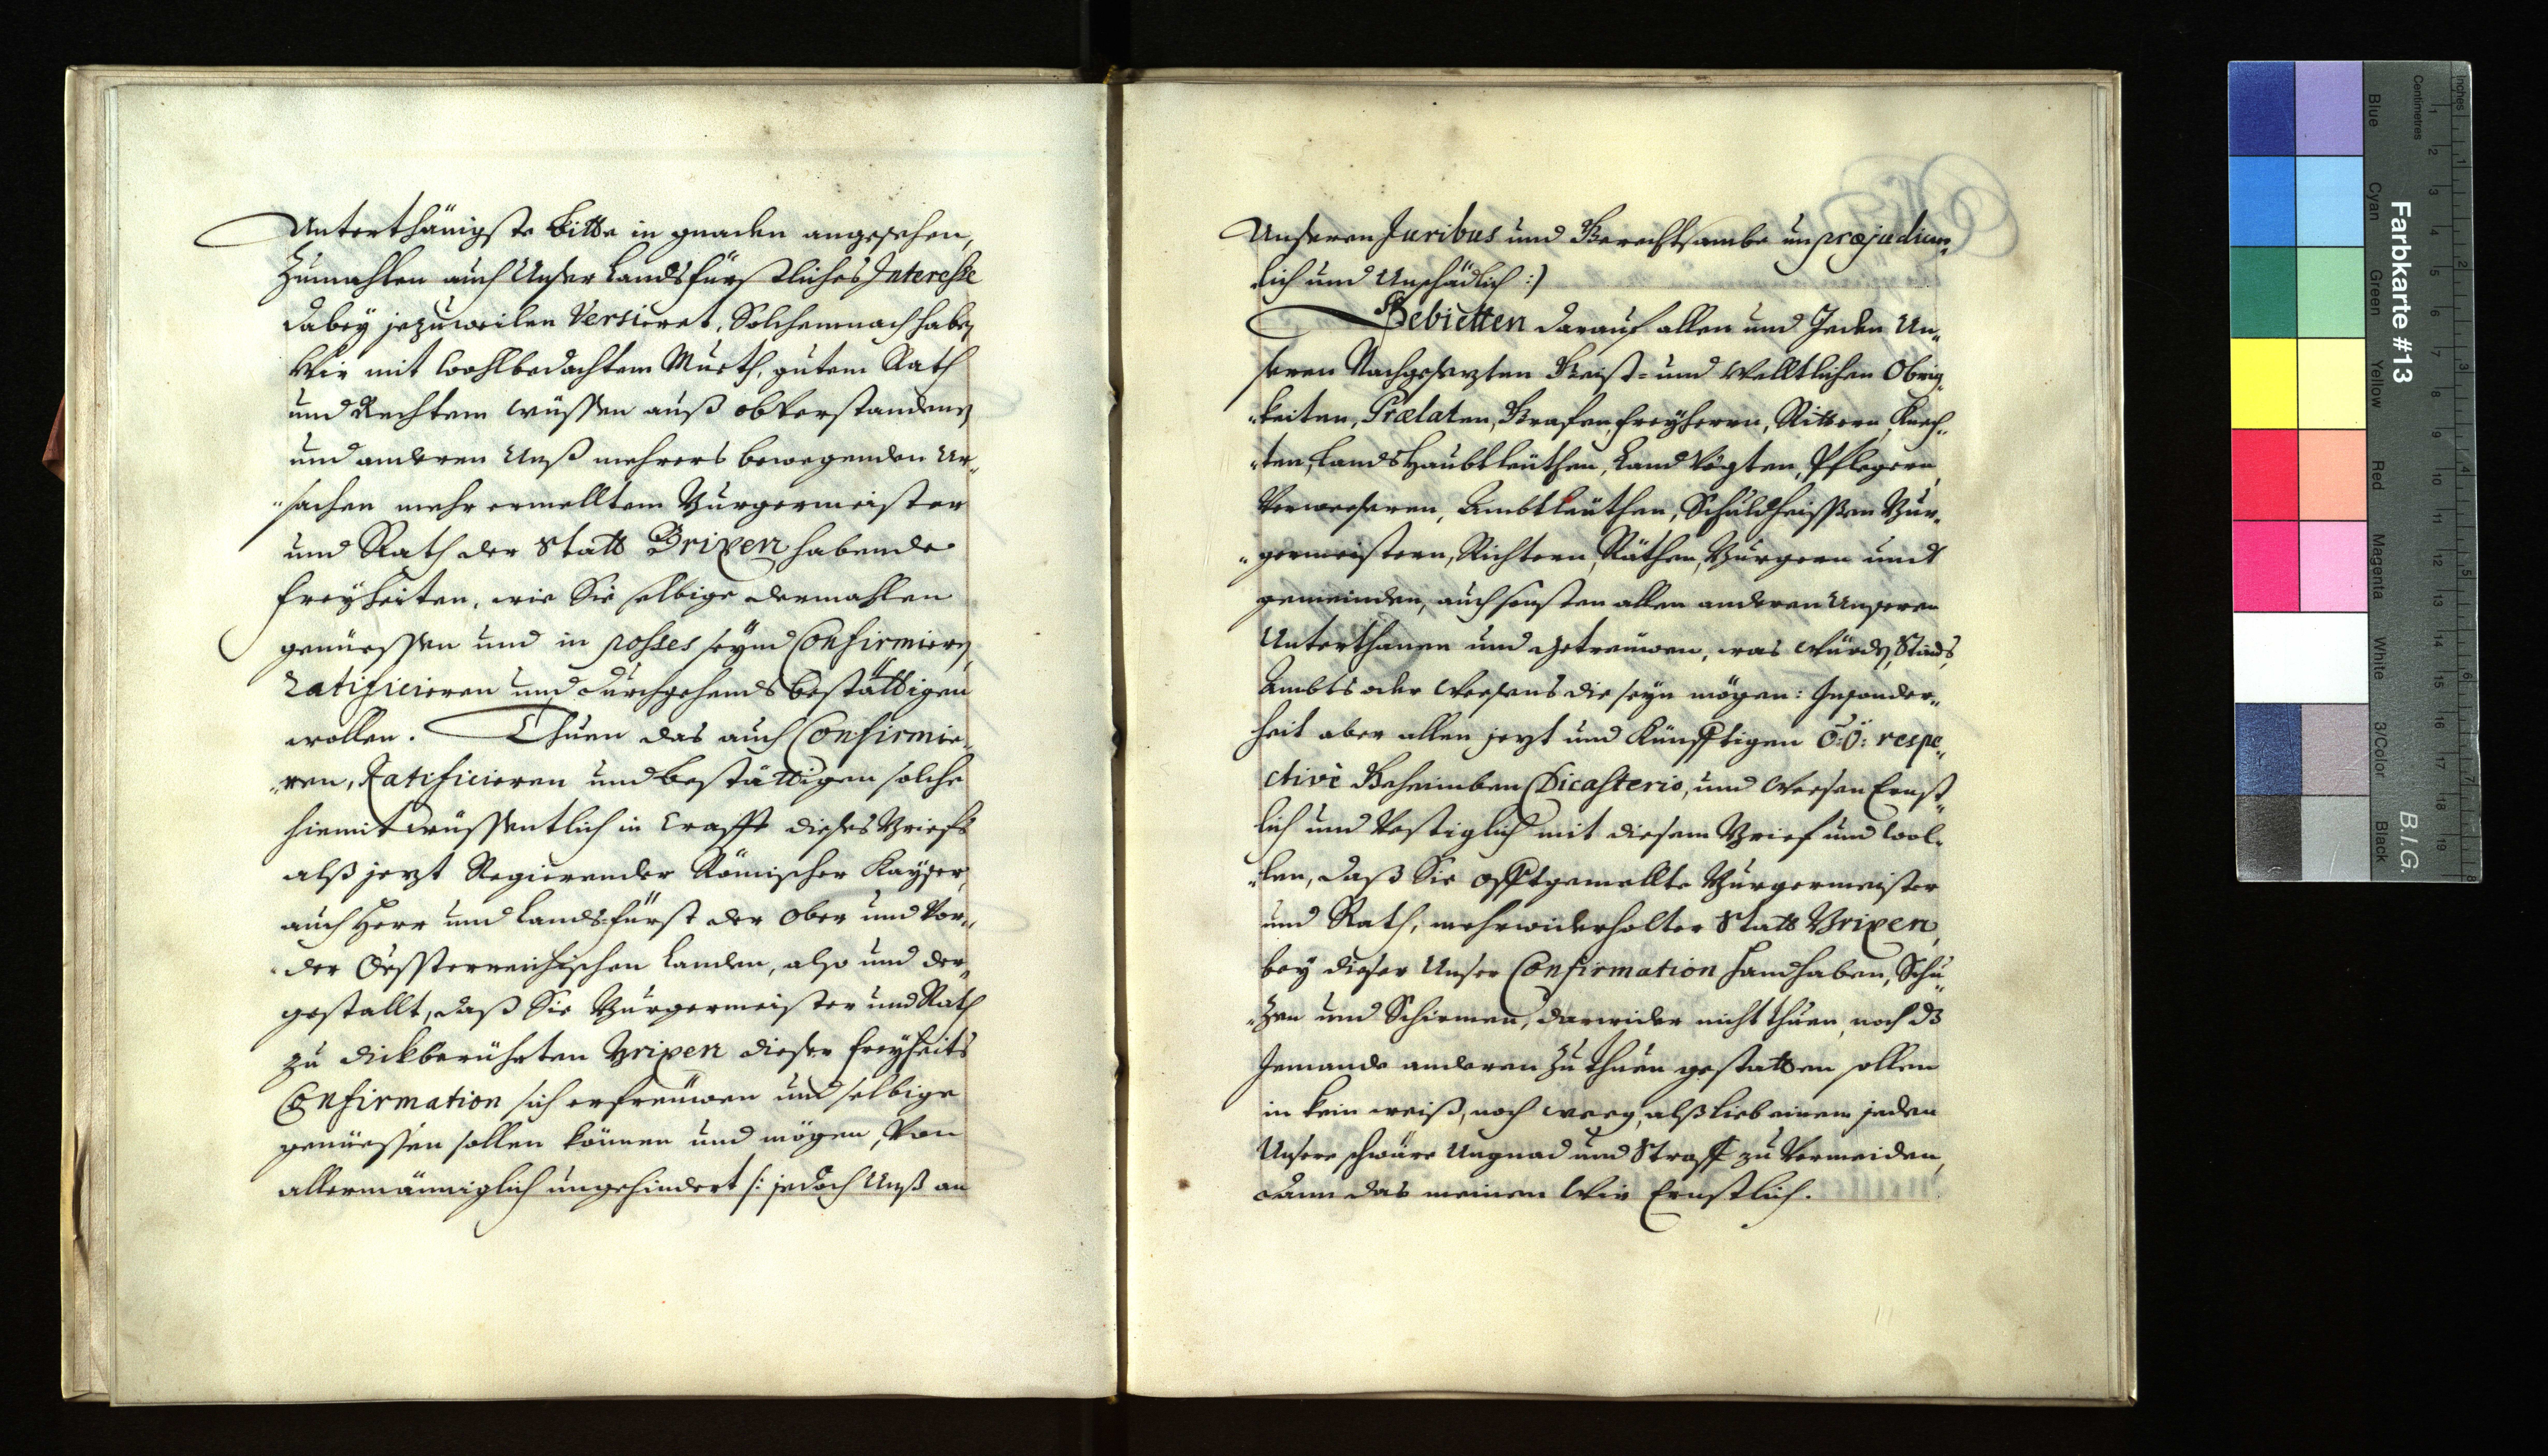 Unterthänigste bitte in gnaden angesehen,
Zumahlen auch Unser Landsfürstliches Interesse
dabeÿ jezuweilen Versieret. Solchemnach haben
Wir mit wohlbedachtem Mueth, gutem Rath
und Rechtem wüssen auß obverstandenen
und anderen Unß mehrers bewegenden Ur„
„sachen mehr ermelltem Burgermeister
und Rath der Statt Brixen habende
freÿheiten, wie Sie selbige dermahlen
genüessen und in posses seÿnd Confirmieren,
Ratificieren und durchgehends bestättigen
wollen. Thuen das auch Confirmie„
„ren, Ratificieren und bestättigen solche
hiemit wüssentlich in Crafft dieses Briefs
alß jezt Regierender Römischer Kaÿser,
auch Herr und Landsfürst der Ober und Vor„
der Oessterreichischen Landen, also und der„
gestallt, daß Sie Burgermeister und Rath
zu dickberührten Brixen dieser freÿheits
Confirmation sich erfreüwen und selbige
genüessen sollen können und mögen, Von
allermänniglich ungehindert /: jedoch Unß an
Unseren Juribus und Gerechtsambe unpræjudicir„
lich und Unschädlich :/
Gebietten darauf allen und Jeden Un„
seren Nachgesezten Geist- und Welltlichen Obrig„
„keiten, Prælaten, Grafen, freÿherrn, Rittern, Knech„
„ten, LandsHaubtleüthen, Land Vögten, Pflegern,
Verweseren, Ambtleüthen, Schuldheissen Bur„
„germeistern, Richtern, Räthen, Burgern und
gemeinden, auch sonsten allen anderen Unseren
Unterthanen und getreüwen, was würden, Stands,
Ambts oder Weesens die seÿn mögen: Insonder„
heit aber allen jezt und Künfftigen O:Ö: respe„
ctivè Geheimben Dicasterio, und Weesen Ernst„
lich und Vestiglich mit diesem Brief und wol„
„len, daß Sie offtgemellte Burgermeister
und Rath, mehrwiderholter Statt Brixen,
beÿ dieser Unser Confirmation handhaben, Schü„
„zen und Schirmen, darwider nicht thuen, noch dz
Jemande anderen zu thuen gestatten sollen
in kein weiß, noch weeg, alß lieb einem jeden
Unsere schwäre Ungnad und Straff zu Vermeiden,
dann das meinen Wir Ernstlich.
Farbkarte #13
B.I.G.
Blue
Cyan
Green
Yellow
Red
Magenta
White
3/Color
Black
Centimetres
Inches
1 2 3 4 5 6 7 8 9 10 11 12 13 14 15 16 17 18 19
1 2 3 4 5 6 7 8